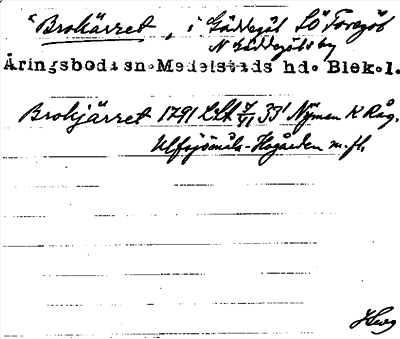 "Brokärret, i Gäddegöl SÖ Foregöl
N Gäddegölsby
Åringsbodasn. Medelstads hd. Blek.l.
Brokjärret 1791 Lilt 7/VI 33' Nyman K Råg.
Ulfsjömåla-Hogården m.fl.